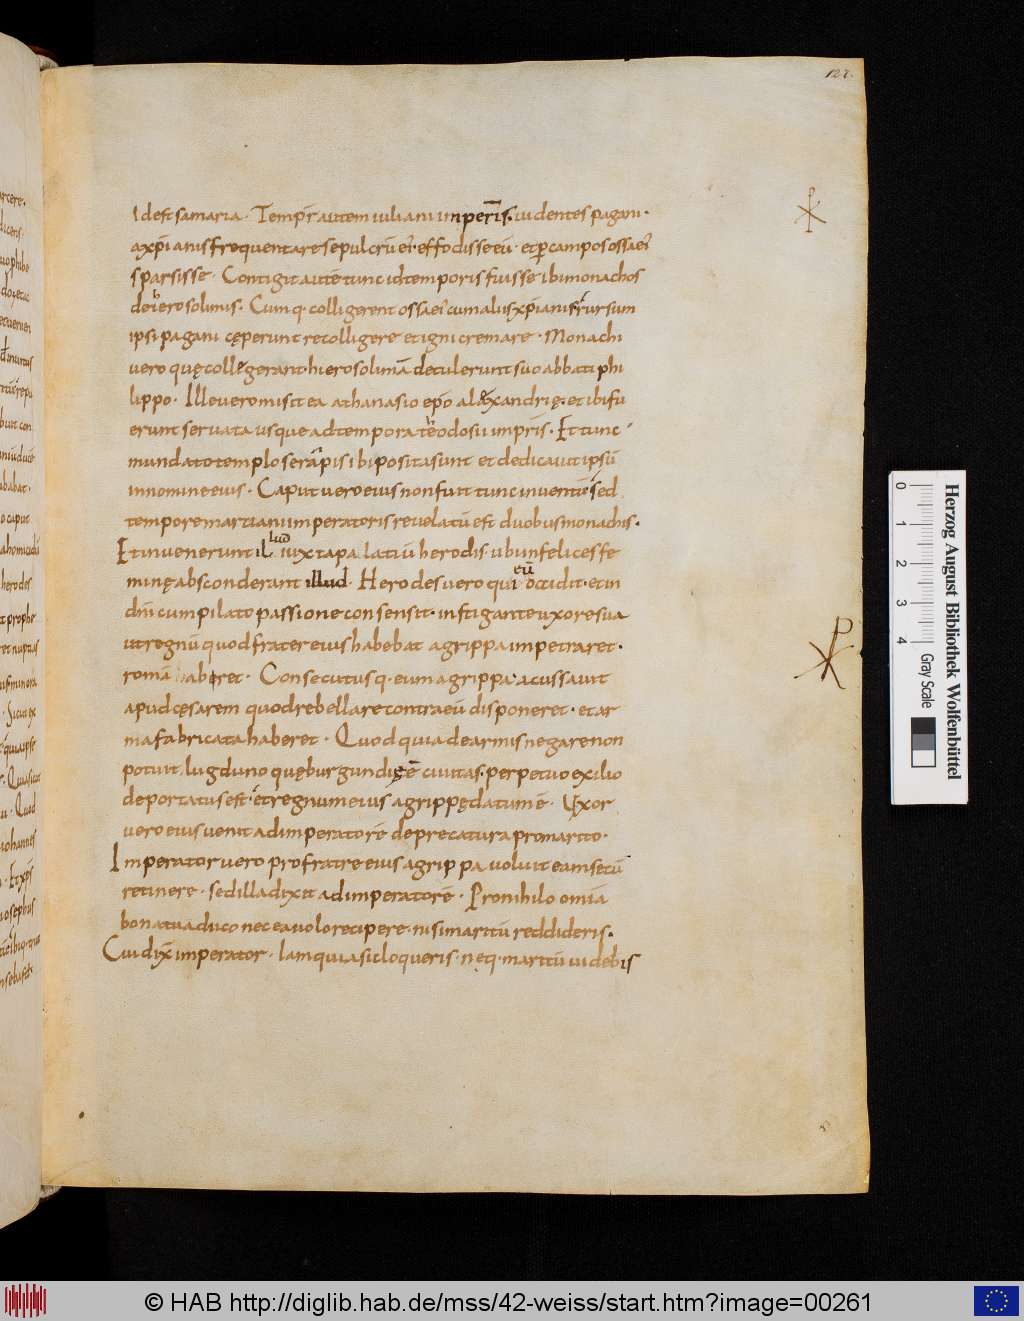 127.
Idest samaria. Tempr̄ autem iuliani inperr̄is. uidentes pagani.
a xp̄ianis frequentare sepulcrū ei᷒. effodisse eū. et ꝑ campos ossa ei᷒
sparsisse. Contigit autē tunc id temporis fuisse ibi monachos
de hierosolimis. Cumq. colligerent ossa ei᷒ cum aliis xp̄ianis rursum
ipsi pagani cęperunt recolligere et igni cremare. Monachi
uero quę collegerant. hierosolimā detulerunt suo abbati phi
lippo. Ille uero misit ea athanasio ep̄o alexandrię. et ibi fu
erunt seruata usque ad tempora theodosii imp̄ris. Et tunc
mundato templo serapis ibi posita sunt et dedicauit ipsū
in nomine eius. Caput uero eius non fuit tunc inuentū sed
tempore martiani imperatoris reuelatū est duobus monachis.
Et inuenerunt illud iuxta palatiū herodis. ubi infelices fe
minę absconderant illud. Herodes uero qui eū occidit. et in
dn̄i cum pilato passione consensit. instigante uxore sua
ut regnū quod frater eius habebat agrippa impetraret.
romā abiret. Consecutusq. eum agrippa. acussauit
apud cęsarem quod rebellare contra eū disponeret. et ar
ma fabricata haberet. Quod quia de armis negare non
potuit. lugduno quę burgundię ē ciuitas. perpetuo exilio
deportatus est. et regnum eius agrippę datum ē. Uxor
uero eius uenit ad imperatorē deprecatura pro marito.
Imperator uero pro fratre eius agrippa uoluit eam secū
retinere. sed illa dixit ad imperatorē. Pro nihilo om̄ia
bona tua duco nec ea uolo recipere. nisi maritū reddideris.
Cui dix̄ imperator. Iam quia sic loqueris. neq. maritū uidebis
Herzog August Bibliothek Wolfenbüttel
0 1 2 3 4
Gray Scale
© HAB http://diglib.hab.de/mss/42-weiss/start.htm?image=00261